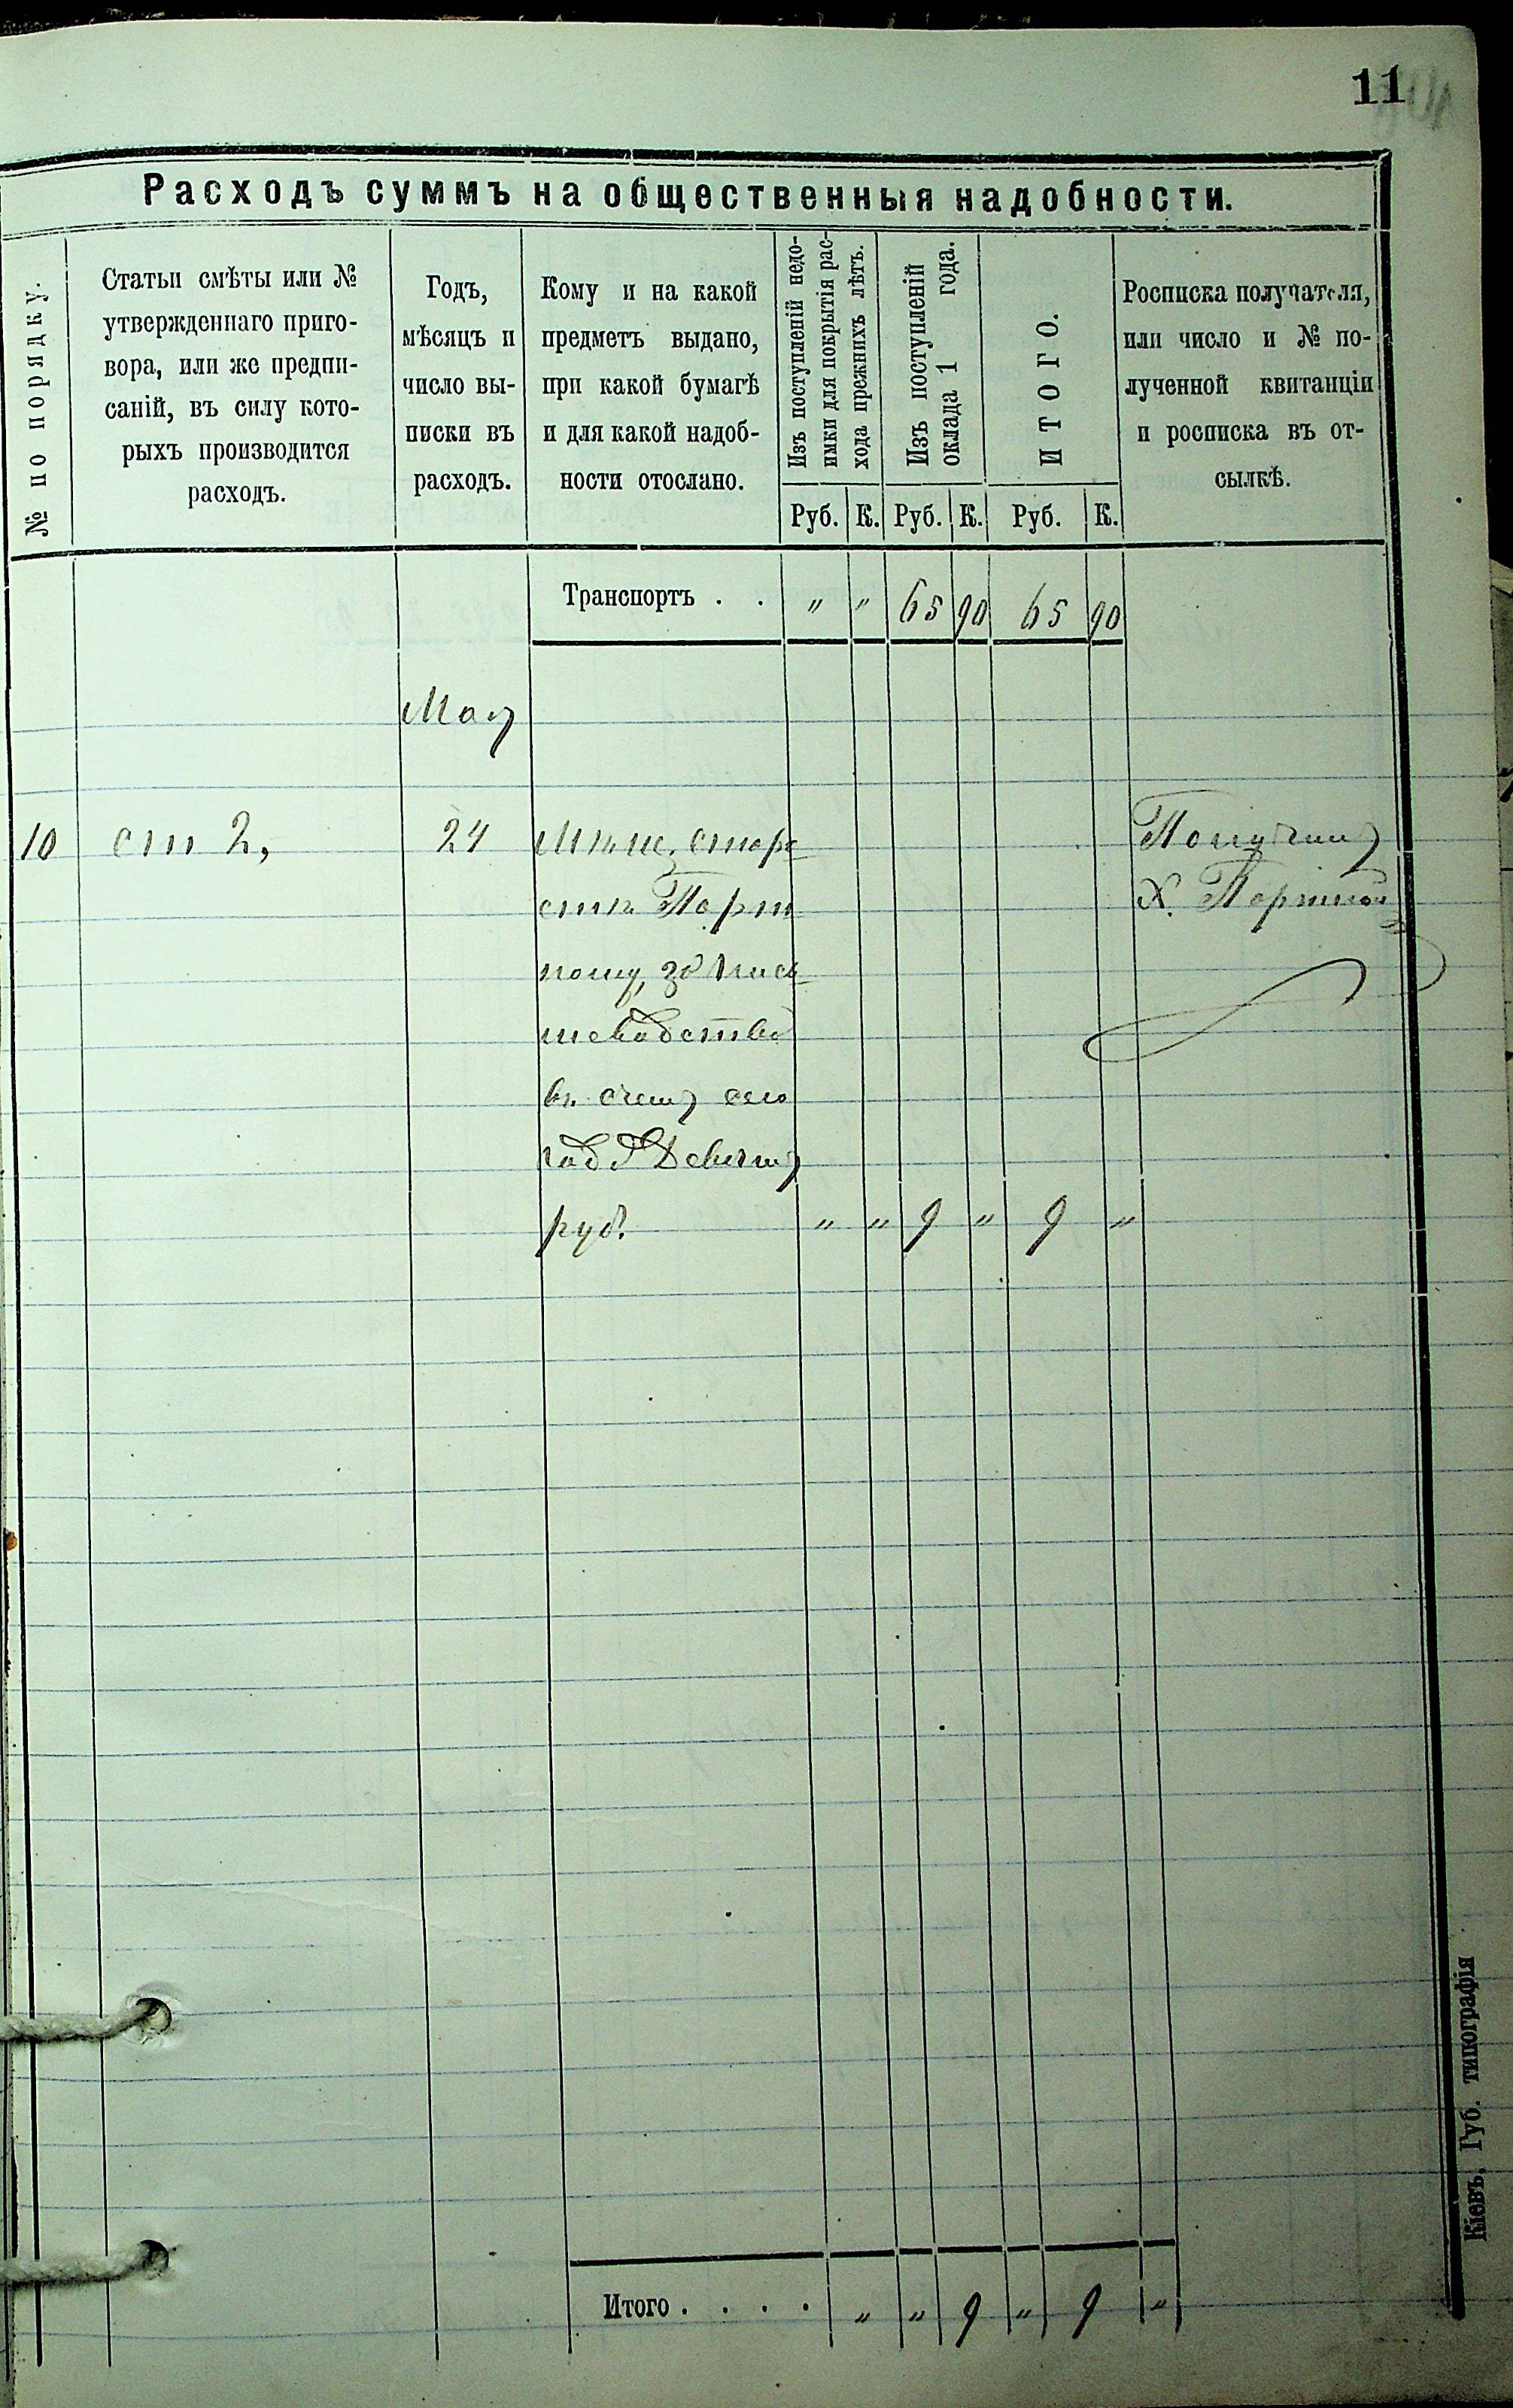 11
Расходъ суммъ на общественныя надобности.
№ по порядку.
Статьи смѣты или №
утвержденнаго приго-
вора, или же предпи-
саній, въ силу кото-
рыхъ производится
расходъ.
Годъ,
мѣсяцъ и
число вы-
писки въ
расходъ.
Кому и на какой
предметъ выдано,
при какой бумагѣ
и для какой надоб-
ности отослано.
Изъ поступленій недо-
имки для покрытія рас-
хода прежнихъ лѣтъ.
Изъ поступленій
оклада 1 года.
ИТОГО.
Росписка получателя,
или число и № по-
лученной квитанціи
и росписка въ от-
сылкѣ.
Руб. К. Руб. К. Руб. К.
Транспортъ . . " " 65 90 65 90
Мая
10 ст 2, 24
Порт
ному, за
въ счетъ сего
руб. " " 9 " 9 "
Х. Портной
Итого . . . . " " 9 " 9 "
Кіевъ, Губ. типографія